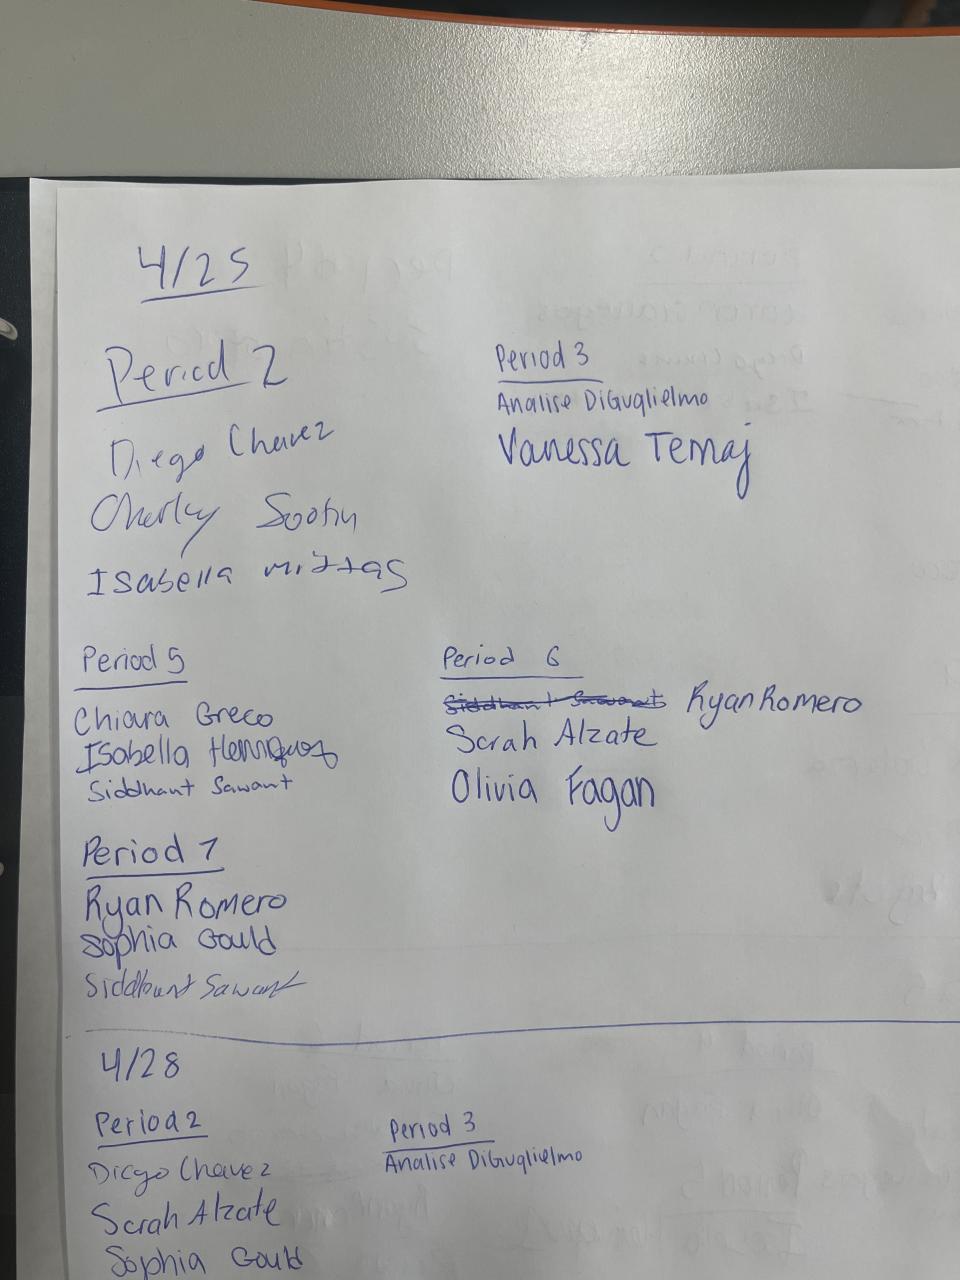 4/25
Period 2
Diego Chavez
Charley
Isabella
Period 3
Analise DiGuglielmo
Vanessa Temaj
Period 5
Chiara Greco
Isabella Henriquez
Siddhant Sawant
Period 6
Siddhant Sawant Ryan Romero
Sarah Alzate
Olivia Fagan
Period 7
Ryan Romero
Sophia Gould
Siddhant Sawant
4/28
Period 2
Diego Chavez
Sarah Alzate
Sophia Gould
Period 3
Analise DiGuglielmo